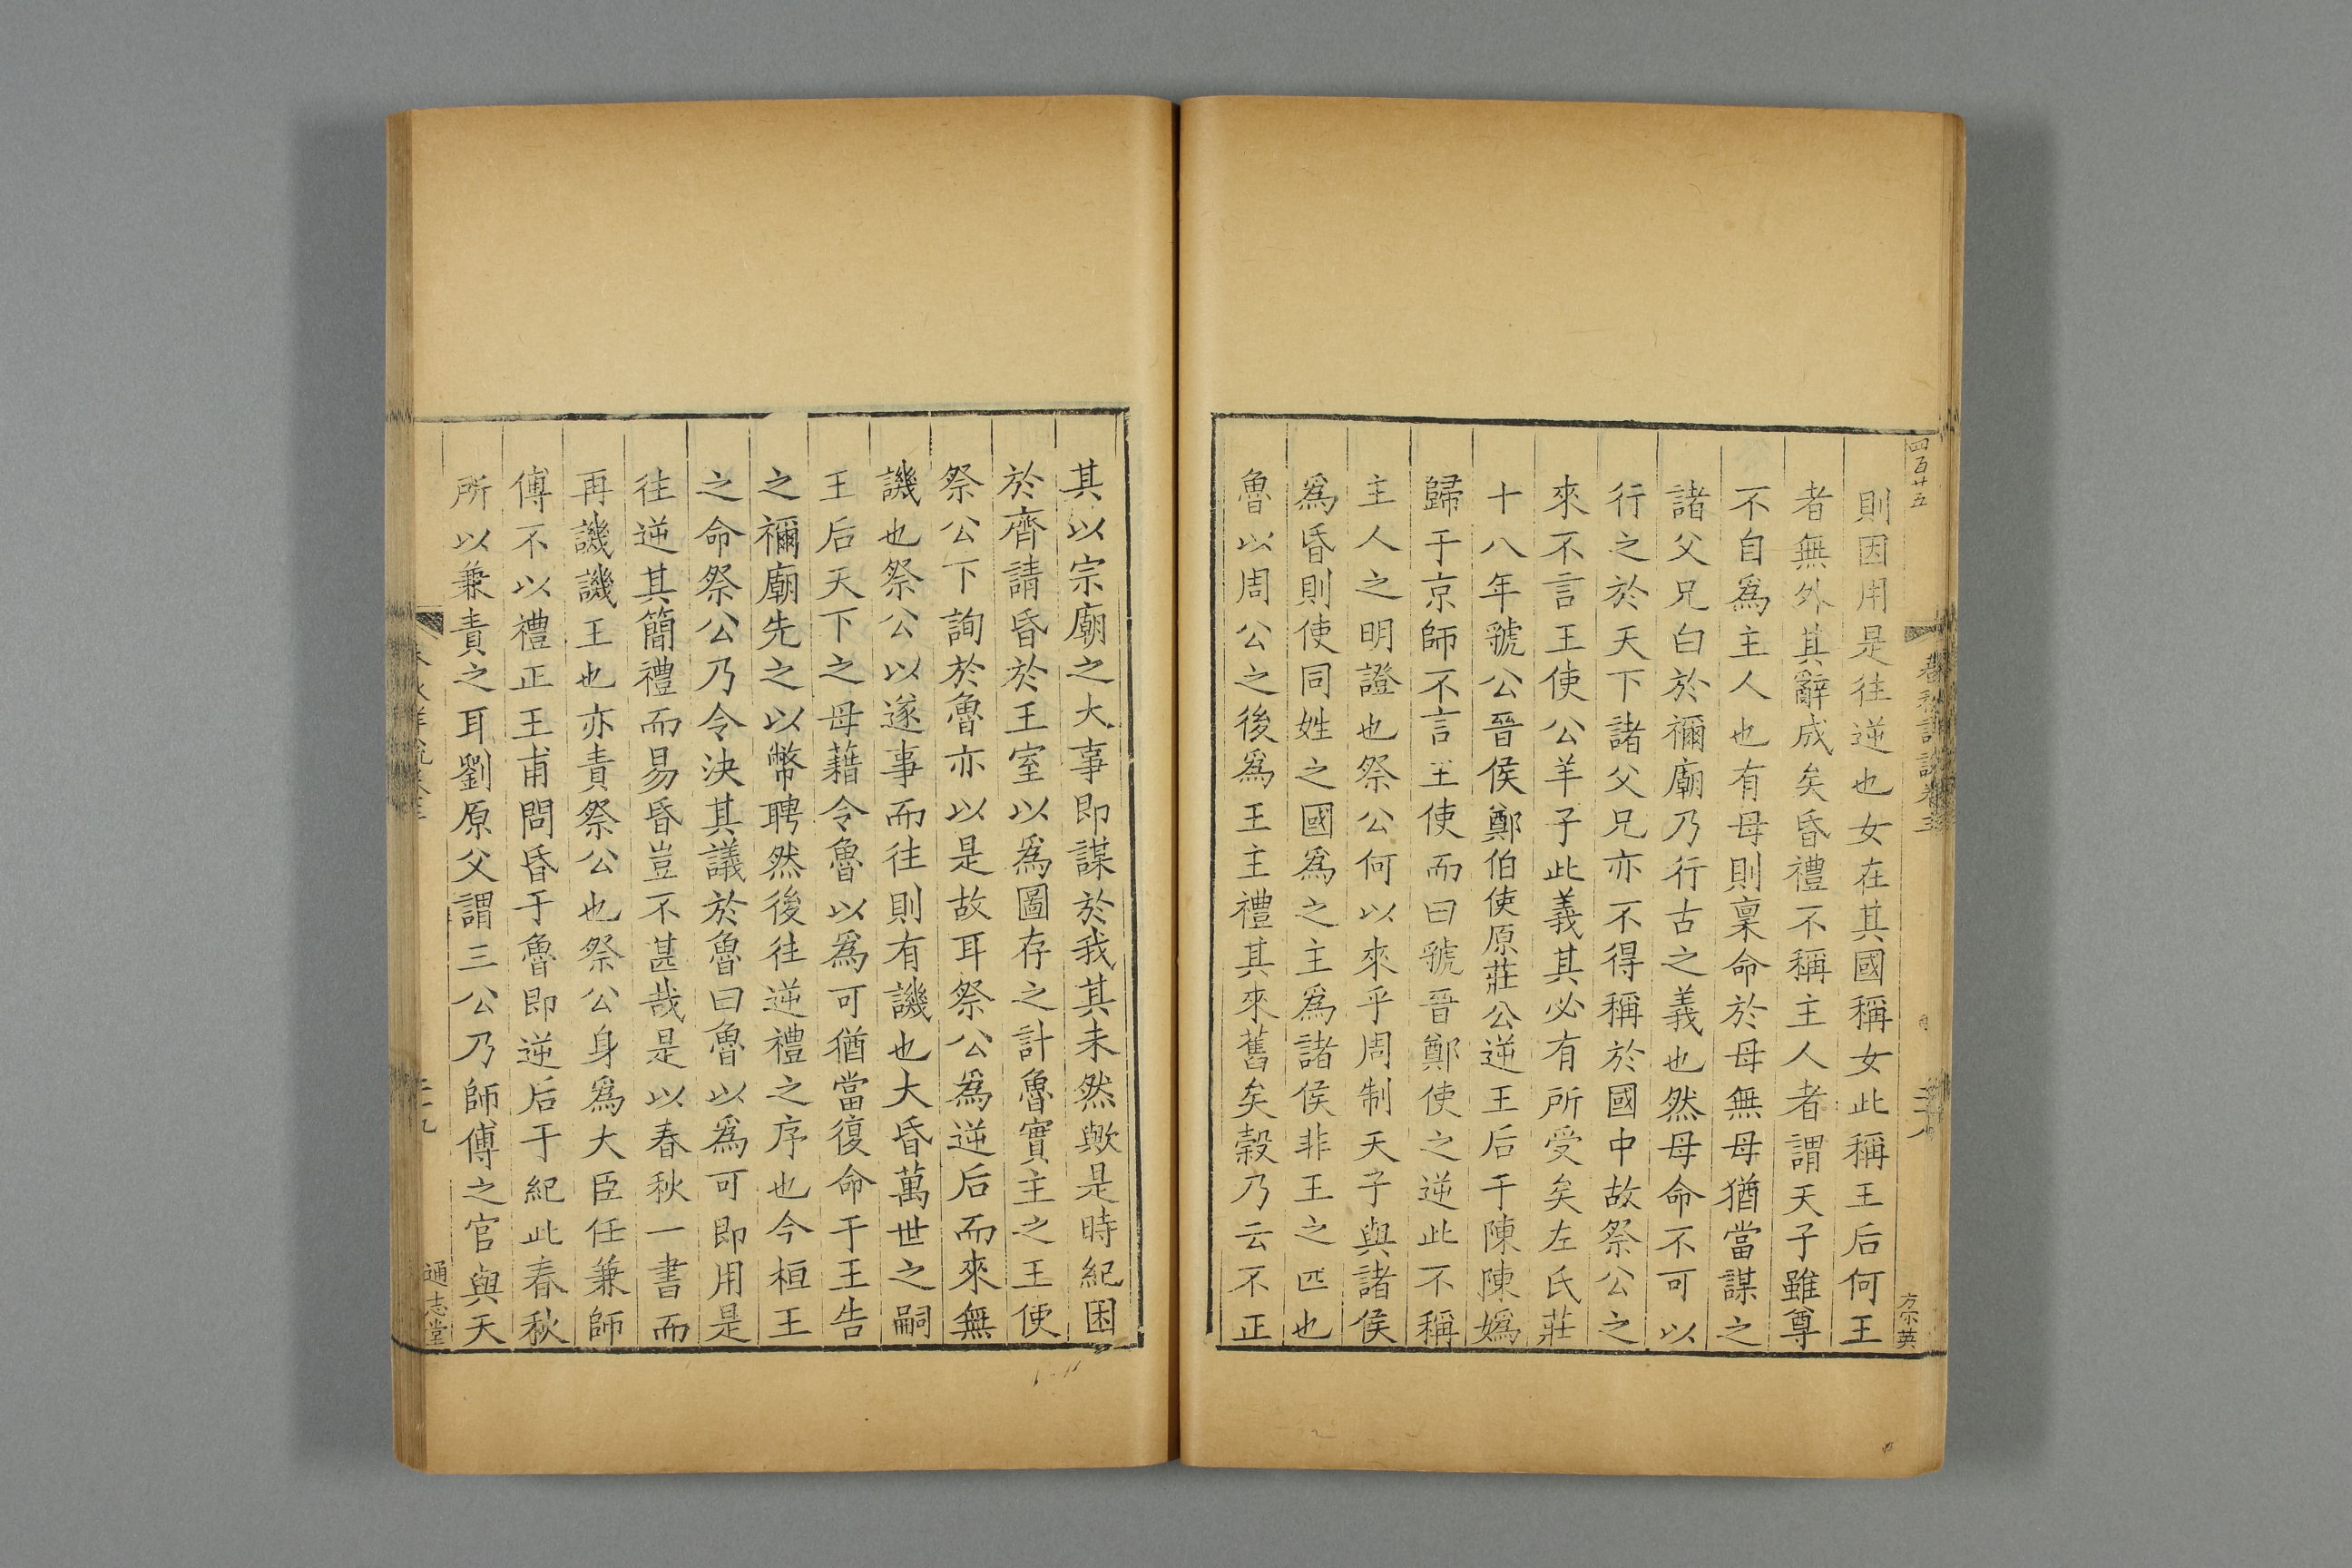 四百廿五
春秋詳說卷三
二十八
方宗英
則因用是往逆也女在其國稱女此稱王后何王
者無外其辭成矣昏禮不稱主人者謂天子雖尊
不自爲主人也有母則稟命於母無母猶當謀之
諸父兄白於禰廟乃行古之義也然母命不可以
行之於天下諸父兄亦不得稱於國中故祭公之
來不言王使公羊子此義其必有所受矣左氏莊
十八年虢公晉侯鄭伯使原莊公逆王后于陳陳嬀
歸于京師不言王使而曰虢晉鄭使之逆此不稱
主人之明證也祭公何以來乎周制天子與諸侯
爲昏則使同姓之國爲之主爲諸侯非王之匹也
魯以周公之後爲王主禮其來舊矣穀乃云不正
其以宗廟之大事即謀於我其未然歟是時紀困
於齊請昏於王室以爲圖存之計魯實主之王使
祭公下詢於魯亦以是故耳祭公爲逆后而來無
譏也祭公以遂事而往則有譏也大昏萬世之嗣
王后天下之母藉令魯以爲可猶當復命于王告
之禰廟先之以幣聘然後往逆禮之序也今桓王
之命祭公乃令決其議於魯曰魯以爲可即用是
往逆其簡禮而易昏豈不甚哉是以春秋一書而
再譏譏王也亦責祭公也祭公身爲大臣任兼師
傅不以禮正王甫問昏于魯即逆后于紀此春秋
所以兼責之耳劉原父謂三公乃師傅之官與天
春秋詳說卷三
二十九
通志堂